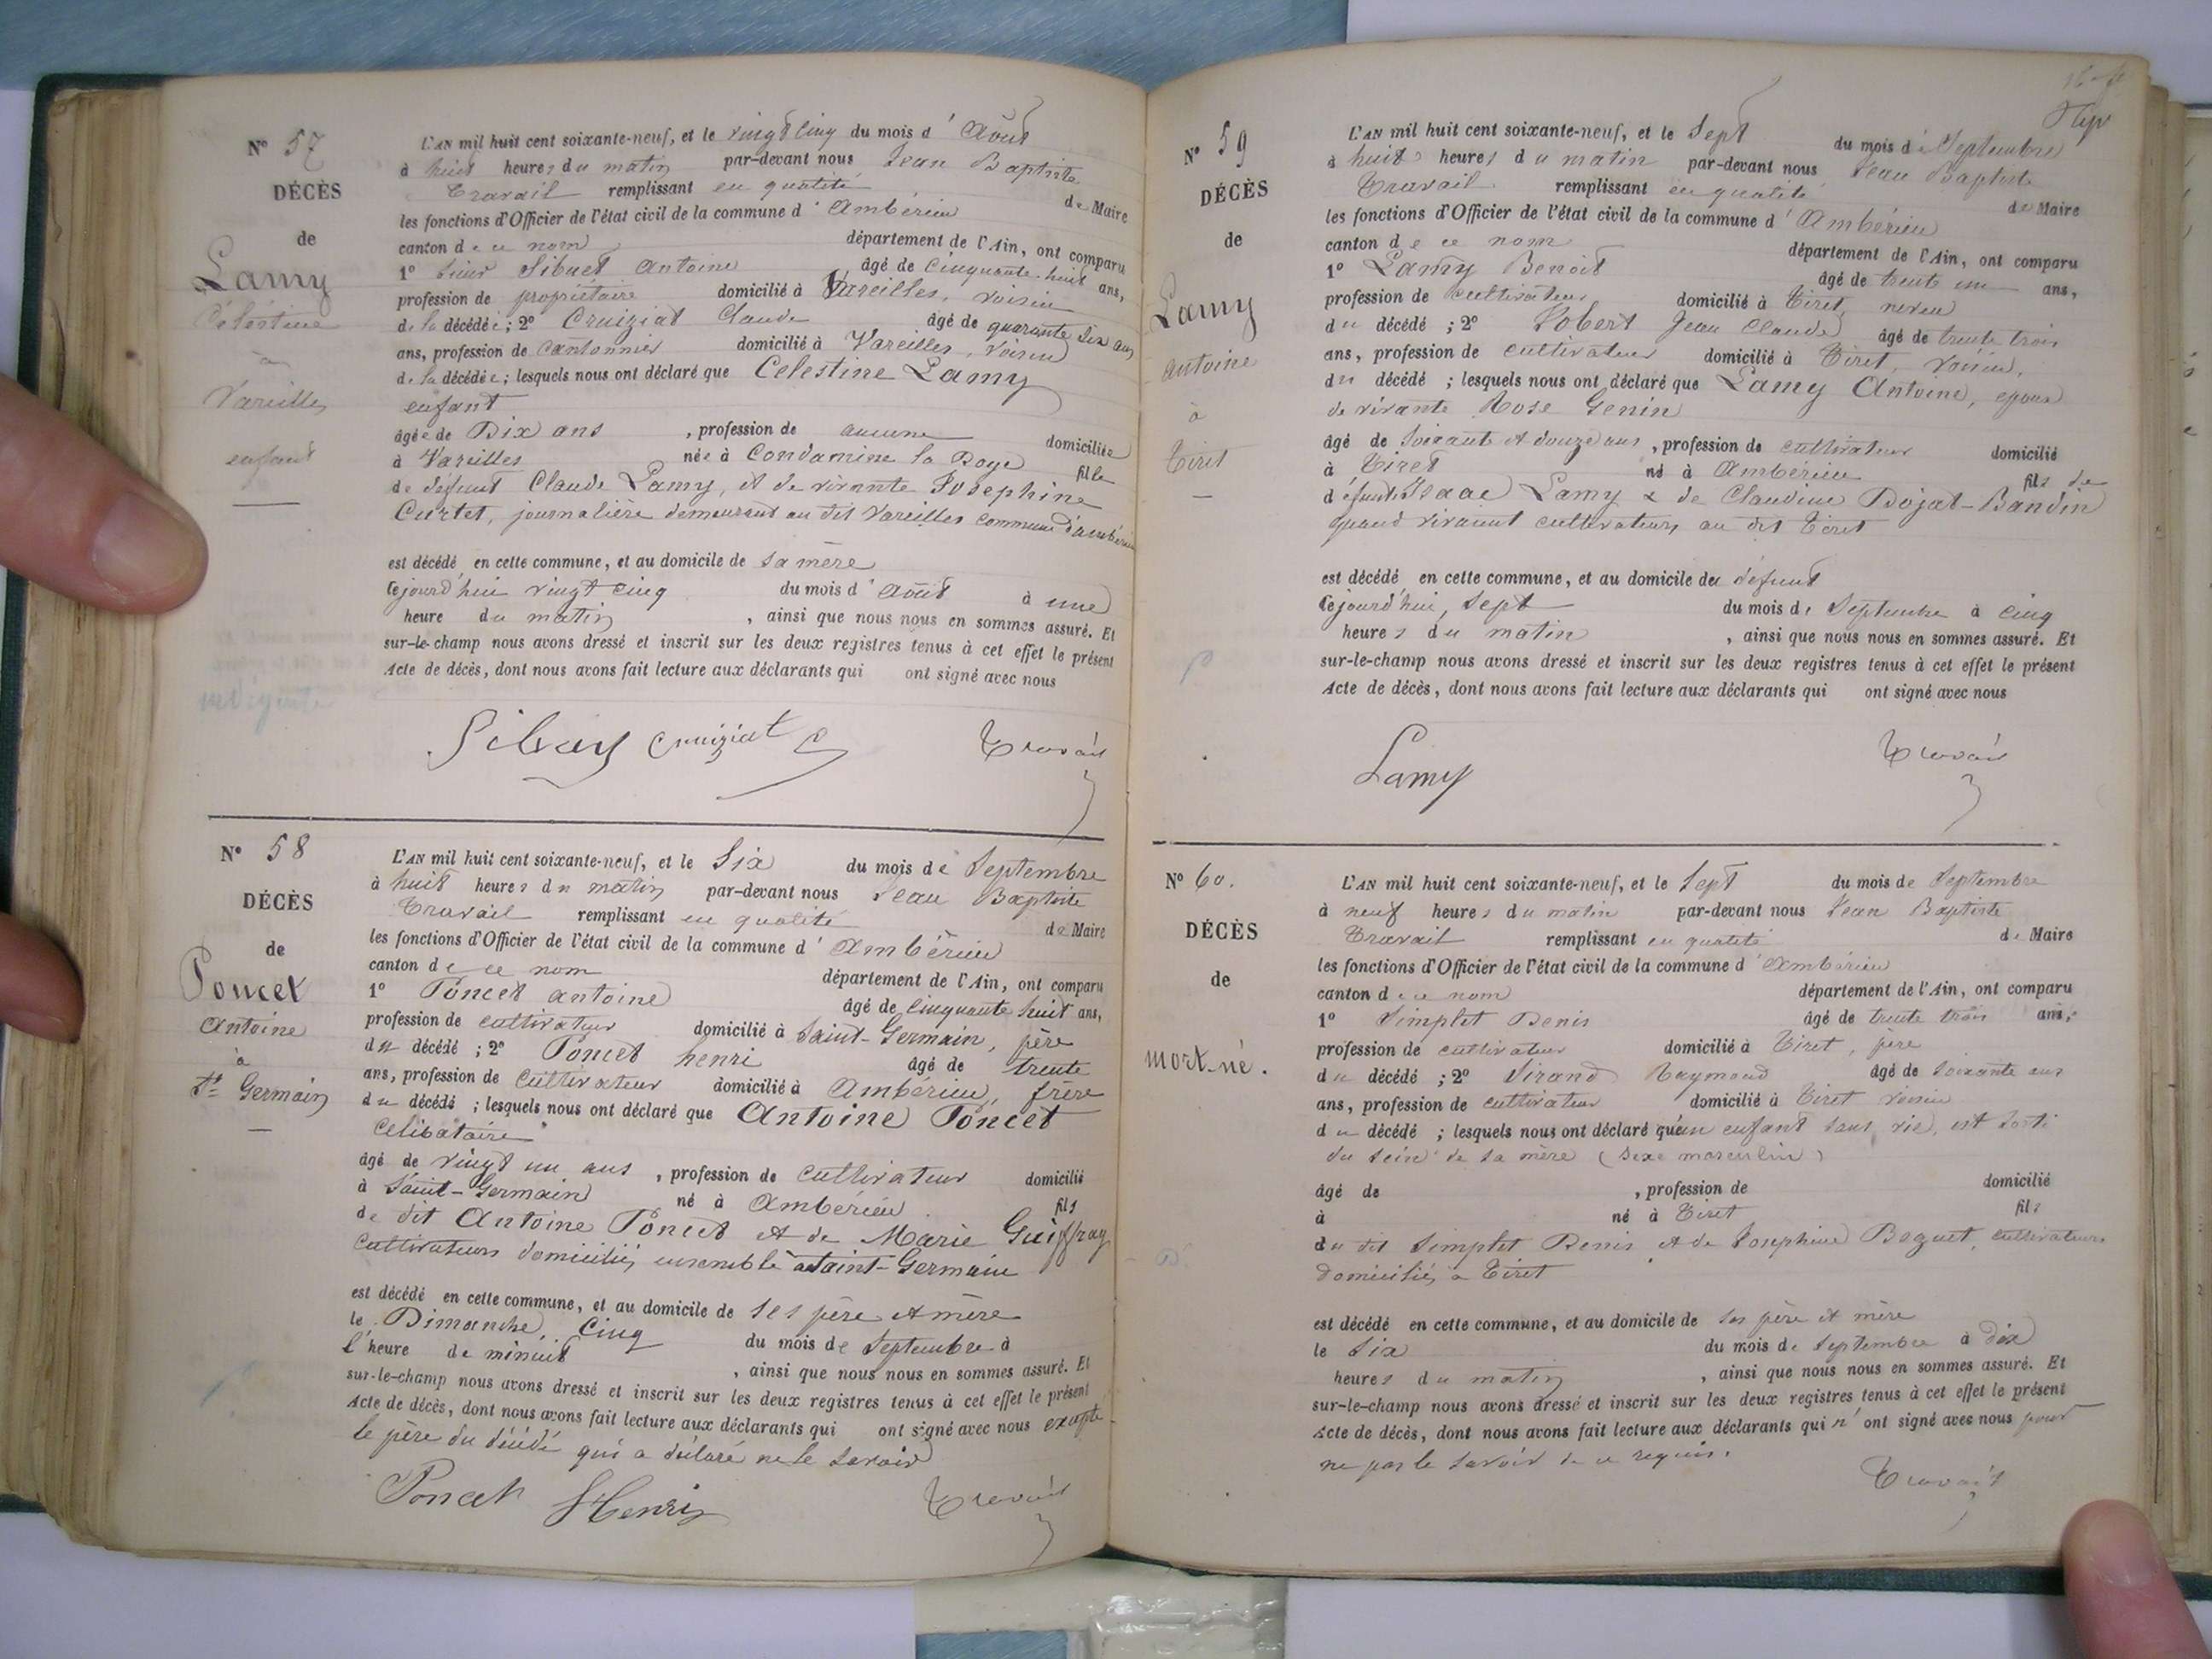 N° 57
DÉCÈS
de
Lamy
Célestine
à
Vareilles
enfant
indigente
L'AN mil huit cent soixante-neuf, et le vingt cinq du mois d'Août
à huit heures du matin par-devant nous Jean Baptiste
Travail remplissant en qualité de Maire
les fonctions d'Officier de l'état civil de la commune d'Ambérieu
canton de ce nom département de l'Ain, ont comparu
1° Sieur Sibuet Antoine âgé de cinquante huit ans,
profession de propriétaire domicilié à Vareilles, voisin
de la décédée; 2° Cruiziat Claude âgé de quarante six ans
ans, profession de cantonnier domicilié à Vareilles, voisin
de la décédée; lesquels nous ont déclaré que Celestine Lamy
enfant
âgée de Dix ans, profession de aucune domiciliée
à Vareilles née à Condamine la Doye fille
de défunt Claude Lamy, et de vivante Josephine
Curtet, journalière demeurant au dit Vareilles commune d'ambérieu
est décédé en cette commune, et au domicile de sa mère
cejourd'hui vingt cinq du mois d'Août à une
heure du matin, ainsi que nous nous en sommes assuré. Et
sur-le-champ nous avons dressé et inscrit sur les deux registres tenus à cet effet le présent
Acte de décès, dont nous avons fait lecture aux déclarants qui ont signé avec nous
Sibuet Cruiziat C Travail
N° 58
DÉCÈS
de
Poncet
Antoine
à
St Germain
L'AN mil huit cent soixante-neuf, et le Six du mois de Septembre
à huit heures du matin par-devant nous Jean Baptiste
Travail remplissant en qualité de Maire
les fonctions d'Officier de l'état civil de la commune d'Ambérieu
canton de ce nom département de l'Ain, ont comparu
1° Poncet antoine âgé de cinquante huit ans,
profession de cultivateur domicilié à Saint-Germain, père
du décédé; 2° Poncet henri âgé de trente
ans, profession de cultivateur domicilié à Ambérieu, frère
du décédé; lesquels nous ont déclaré que Antoine Poncet
Célibataire
âgé de vingt un ans, profession de cultivateur domicilié
à Saint-Germain né à Ambérieu fils
de dit Antoine Poncet et de Marie Guiffray
cultivateurs domiciliés ensemble à Saint-Germain
est décédé en cette commune, et au domicile de ses père et mère
le Dimanche, Cinq du mois de Septembre à
l'heure de minuit, ainsi que nous nous en sommes assuré. Et
sur-le-champ nous avons dressé et inscrit sur les deux registres tenus à cet effet le présent
Acte de décès, dont nous avons fait lecture aux déclarants qui ont signé avec nous excepté
le père du décédé qui a déclaré ne le savoir
Poncet Henri Travail
N° 59
DÉCÈS
de
Lamy
antoine
à
Tiret
L'AN mil huit cent soixante-neuf, et le Sept du mois de Septembre
à huit heures du matin par-devant nous Jean Baptiste
Travail remplissant en qualité de Maire
les fonctions d'Officier de l'état civil de la commune d'Ambérieu
canton de ce nom département de l'Ain, ont comparu
1° Lamy Benoit âgé de trente un ans,
profession de cultivateur domicilié à Tiret, neveu
du décédé; 2° Robert Jean Claude âgé de trente trois
ans, profession de cultivateur domicilié à Tiret, voisin,
du décédé; lesquels nous ont déclaré que Lamy Antoine, epoux
de vivante Rose Genin
âgé de soixante et douze ans, profession de cultivateur domicilié
à Tiret né à Ambérieu fils de
défunts Isaac Lamy & de Claudine Bojat-Bandin
quand vivaient cultivateurs au dit Tiret
est décédé en cette commune, et au domicile du défunt
cejourd'hui, sept du mois de Septembre à cinq
heures du matin, ainsi que nous nous en sommes assuré. Et
sur-le-champ nous avons dressé et inscrit sur les deux registres tenus à cet effet le présent
Acte de décès, dont nous avons fait lecture aux déclarants qui ont signé avec nous
Lamy Travail
N° 60.
DÉCÈS
de
mort-né.
L'AN mil huit cent soixante-neuf, et le Sept du mois de Septembre
à neuf heures du matin par-devant nous Jean Baptiste
Travail remplissant en qualité de Maire
les fonctions d'Officier de l'état civil de la commune d'Ambérieu
canton de ce nom département de l'Ain, ont comparu
1° Simplet Denis âgé de trente trois ans,
profession de cultivateur domicilié à Tiret, père
du décédé; 2° Sirand Raymond âgé de soixante ans
ans, profession de cultivateur domicilié à Tiret voisin
du décédé; lesquels nous ont déclaré qu'un enfant sans vie, est sorti
du sein de sa mère (sexe masculin)
âgé de , profession de domicilié
à né à Tiret fils
du dit Simplet Denis et de Josephine Boguet, cultivateurs
domiciliés à Tiret
est décédé en cette commune, et au domicile de ses père et mère
le six du mois de Septembre à dix
heures du matin, ainsi que nous nous en sommes assuré. Et
sur-le-champ nous avons dressé et inscrit sur les deux registres tenus à cet effet le présent
Acte de décès, dont nous avons fait lecture aux déclarants qui n'ont signé avec nous pour
ne pas le savoir de ce requis.
Travail